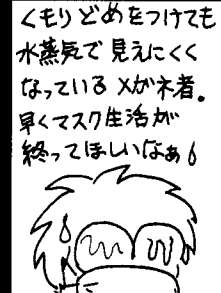 くもりどめをつけても
水蒸気で見えにくく
なっているメガネ者。
早くマスク生活が
終ってほしいなぁ